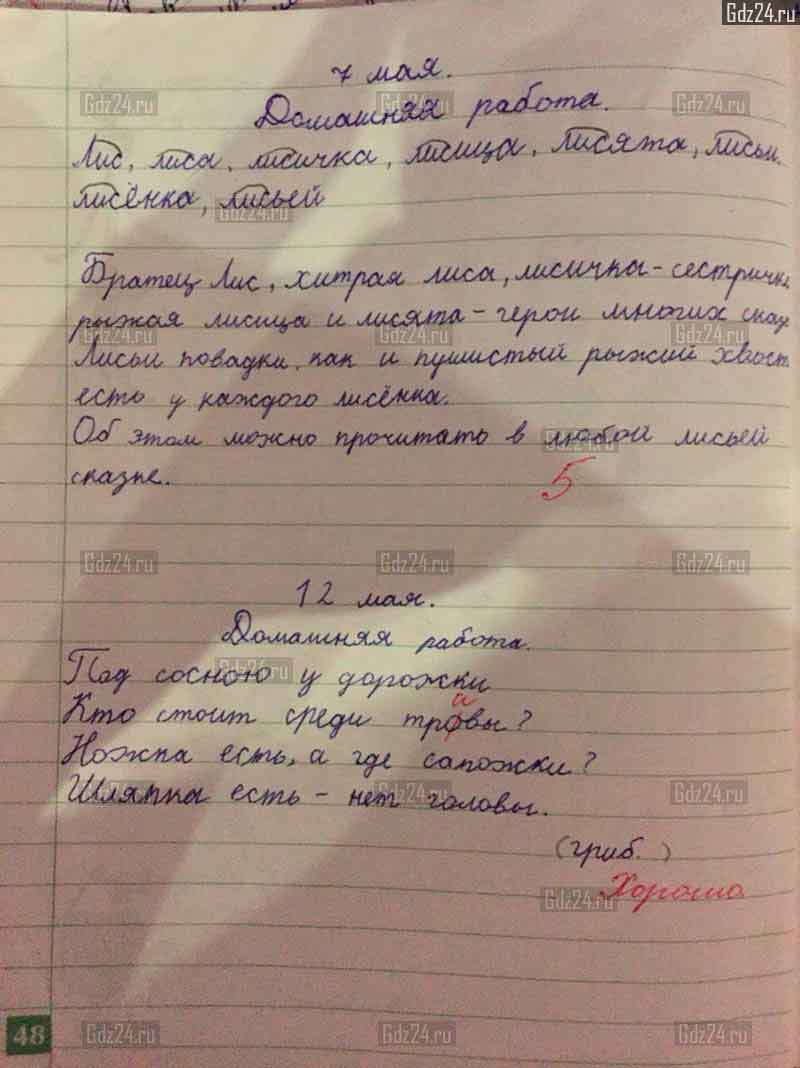 Gdz24.ru
7 мая.
Домашняя работа.
Лис, лиса, лисичка, лисица, лисята, лисьи,
лисёнка, лисьей
Братец Лис, хитрая лиса, лисичка-сестричка,
рыжая лисица и лисята - герои многих сказ
Лисьи повадки, как и пушистый рыжий хвост
есть у каждого лисёнка.
Об этом можно прочитать в любой лисьей
сказке.
5
12 мая.
Домашняя работа.
Под сосною у дорожки
Кто стоит среди травы?
Ножка есть, а где сапожки?
Шляпка есть - нет головы.
(гриб.)
Хорошо
48